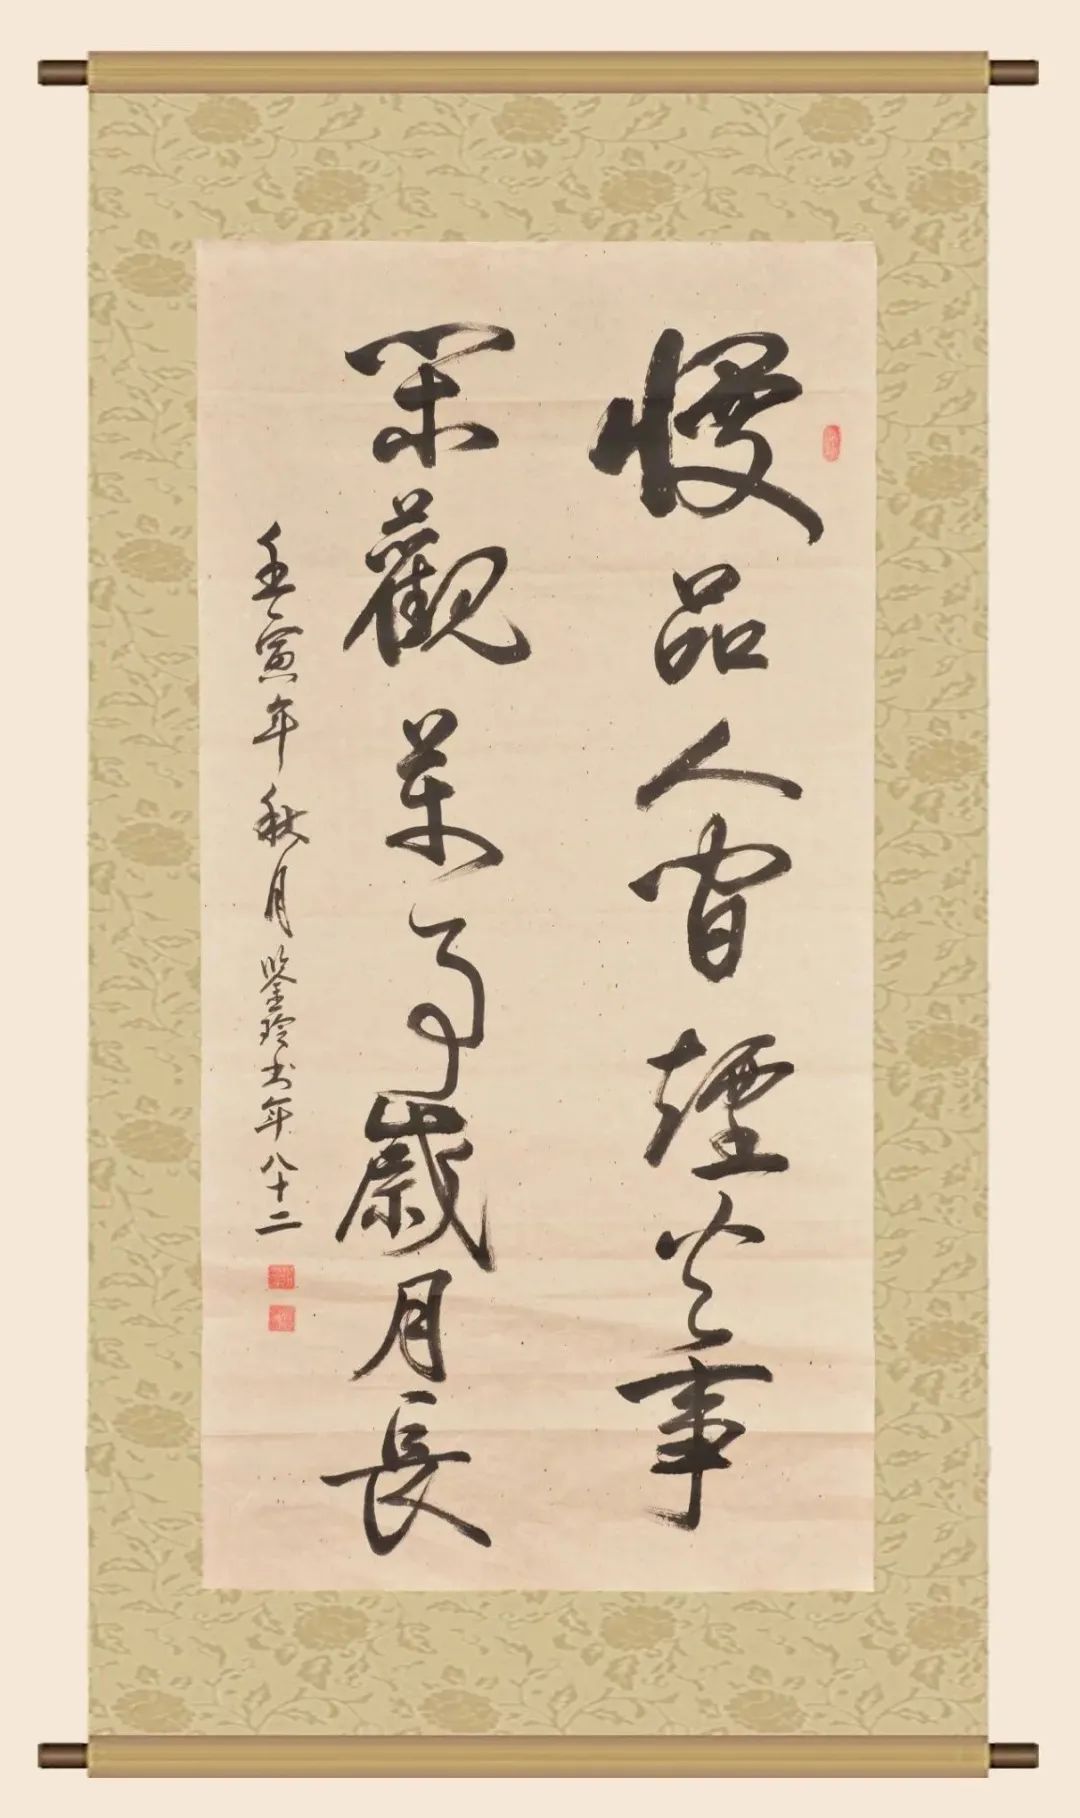 慢品人間煙火事
閑觀萬事歲月長
壬寅年秋月鑒玲书年八十二